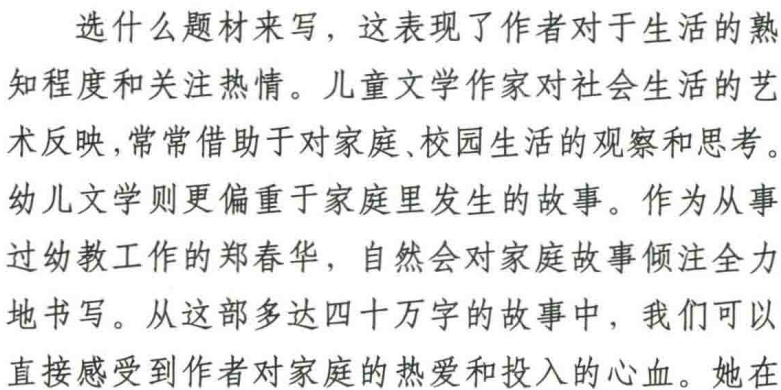 选什么题材来写，这表现了作者对于生活的熟
知程度和关注热情。儿童文学作家对社会生活的艺
术反映,常常借助于对家庭、校园生活的观察和思考。
幼儿文学则更偏重于家庭里发生的故事。作为从事
过幼教工作的郑春华，自然会对家庭故事倾注全力
地书写。从这部多达四十万字的故事中，我们可以
直接感受到作者对家庭的热爱和投入的心血。她在